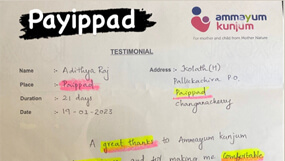 Payippad
ammayum
kunjum
For mother and child from Mother Nature
TESTIMONIAL
Name :- Adithya Raj
Address :- Kolath (H)
Pallakachira P.O.
Place :- Paippad
Paippad
Duration :- 21 days
Changanacherry
Date :- 19-01-2023
A great thanks to Ammayum kunjum
for making me comfortable